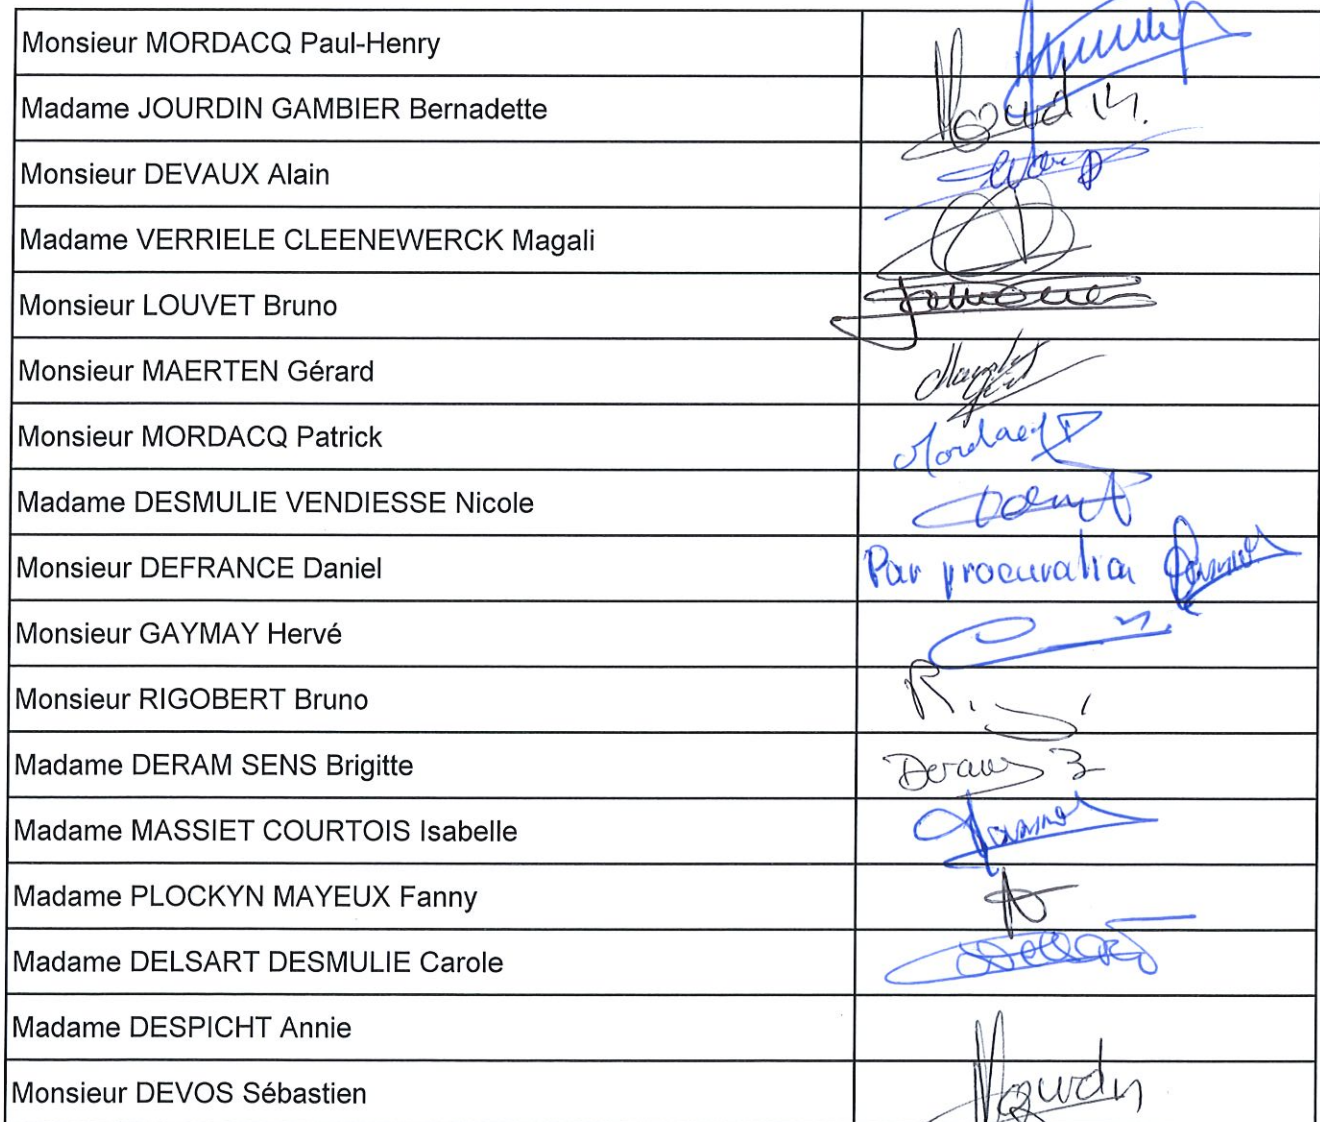 Monsieur MORDACQ Paul-Henry
Madame JOURDIN GAMBIER Bernadette
Monsieur DEVAUX Alain
Madame VERRIELE CLEENEWERCK Magali
Monsieur LOUVET Bruno
Monsieur MAERTEN Gérard
Monsieur MORDACQ Patrick
Mordacq P
Madame DESMULIE VENDIESSE Nicole
Monsieur DEFRANCE Daniel
Par procuration
Monsieur GAYMAY Hervé
Monsieur RIGOBERT Bruno
Madame DERAM SENS Brigitte
Deram B
Madame MASSIET COURTOIS Isabelle
Madame PLOCKYN MAYEUX Fanny
Madame DELSART DESMULIE Carole
Madame DESPICHT Annie
Monsieur DEVOS Sébastien